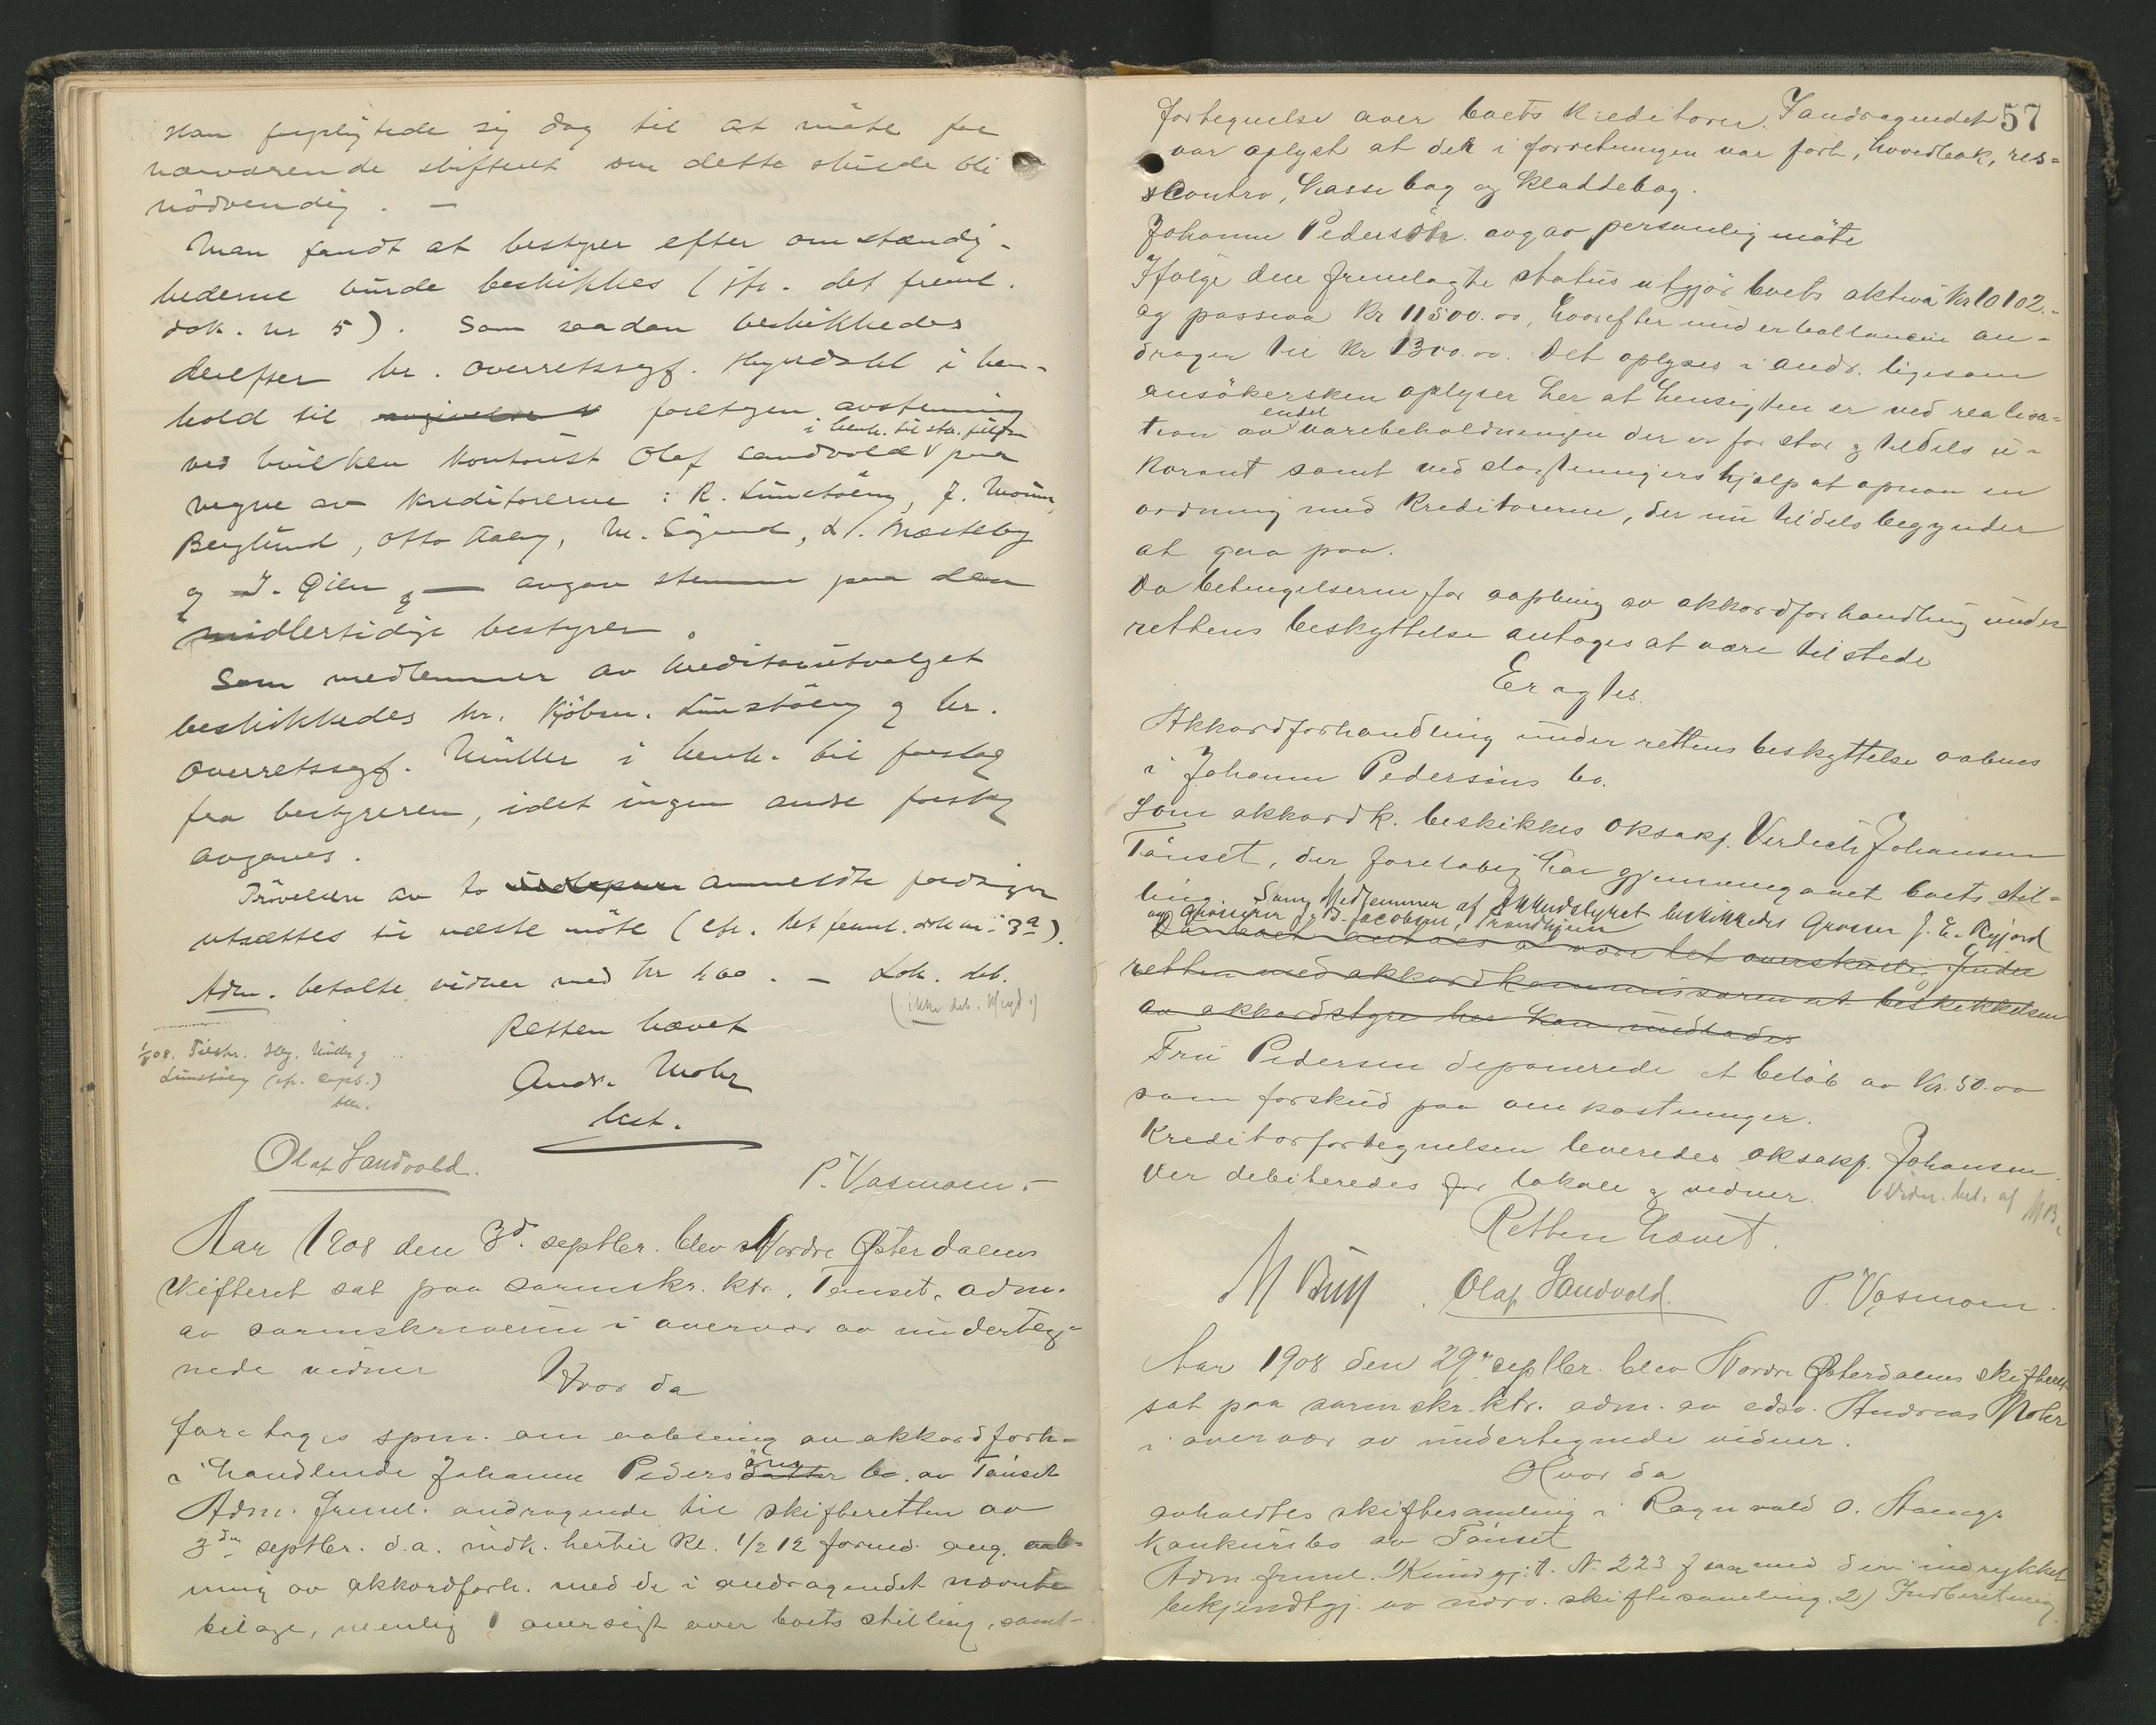 Han forpligtede sig dog til at möte for
nærværende skifteret om dette skulde bli
nödvendig. —
Man fandt at bestyrer efter omstændig-
hederne burde beskikkes (jfr. det freml.
dok. nr 5). Som saadan beskikkedes
derefter hr. overretssagf. i hen-
hold til foretagen avstemning
ved hvilken kontorist Olaf Sandvold i henh. til skr. fuldm paa
vegne av kreditorerne: R. J.
Berglund, Otto Aaby, M. L.
og J. Øien — avgav stemme paa den
midlertidige bestyrer.
Som medlemmer av kreditorutvalget
beskikkedes hr. kjöbm. og hr.
overretssagf. Müller i henh. til forslag
fra bestyreren, idet ingen andre forslag
avgaves.
Prövelsen av to anmeldte fordringer
utsættes til næste möte (cfr. det freml. dok nr. 3a).
Adm. betalte vidner med kr 1.60. — Lok. deb.
(ikke deb.)
Retten hævet
1/8 08. Tilskr. Müller og
(cfr. copb.)
Andr. Mohr
best.
Olaf Sandvold. P. Vasmoen.
Aar 1908 den 3d. septbr. blev Nordre Østerdalens
skifteret sat paa sorenskr. ktr., Tönset, adm.
av sorenskriveren i overvær av underteg-
nede vidner
Hvor da
foretoges spm. om aabning av akkordforh-
i handlende Johanne Pedersdatter öns bo. av Tönset
Adm. freml. andragende til skifteretten av
3dn septbr. d.a. indk. hertil kl. 1/2 12 formd. ang. aab-
ning av akkordforh. med de i andragendet nævnte
bilage, nemlig 1 oversigt over boets stilling, samt
57
fortegnelse over boets kreditorer. I andragendet
var oplyst at der i forretningen var fört, hovedbok, res-
scontro, kassebog og kladdebog.
Johanne Pedersön avgav personlig möte
Ifölge den fremlagte status utgjör boets aktiva Kr 10102.-
og passiva Kr 11500.00, hvorefter underballancen an-
drager til Kr 1300.00. Det oplyses i andr. ligesom
ansökersken oplyser her at hensigten er ved realisa-
tion av endel varebeholdningen der er for stor og tildels u-
korant samt ved slægtningers hjælp at opnaa en
ordning med kreditorerne, der nu tildels begynder
at gaa paa.
Da betingelserne for aapning av akkordforhandling under
rettens beskyttelse antages at være tilstede
Eragtes.
Akkordforhandling under rettens beskyttelse aabnes
i Johanne Pedersöns bo.
Som akkordk. beskikkes oksakf. Johansen
Tönset, der forelöbig har gjennemgaaet boets stil-
ling Som Medlemmer af Akkordstyret beskikkedes Grosser J. E. Ryjord
og Grosserer Jacobsen, Trondhjem
Da boet antaes at være let overskuelig finder
retten med akkordkommissæren at beskikkelsen
av akkordstyre her kan undlades
Fru Pedersen deponerede et belöb av Kr. 50.00
som forskud paa omkostninger.
Kreditorfortegnelsen leveredes oksakf. Johansen
Der debiteredes for lokale og vidner. Vidn. bet. af MB.
Retten hævet.
M Bull Olaf Sandvold. P. Vasmoen.
Aar 1908 den 29n septbr. blev Nordre Østerdalens skifteret
sat paa sorenskr. ktr. adm. av edsv. Andreas Mohr
i overvær av undertegnede vidner.
Hvor da
avholdtes skiftesamling i Ragnvald O. Haugs
konkursbo av Tönset
Adm freml. Kundgj.t. N. 223 f saa med den indrykket
bekjendtgj. av nærv. skiftesamling. 2) Indberetning